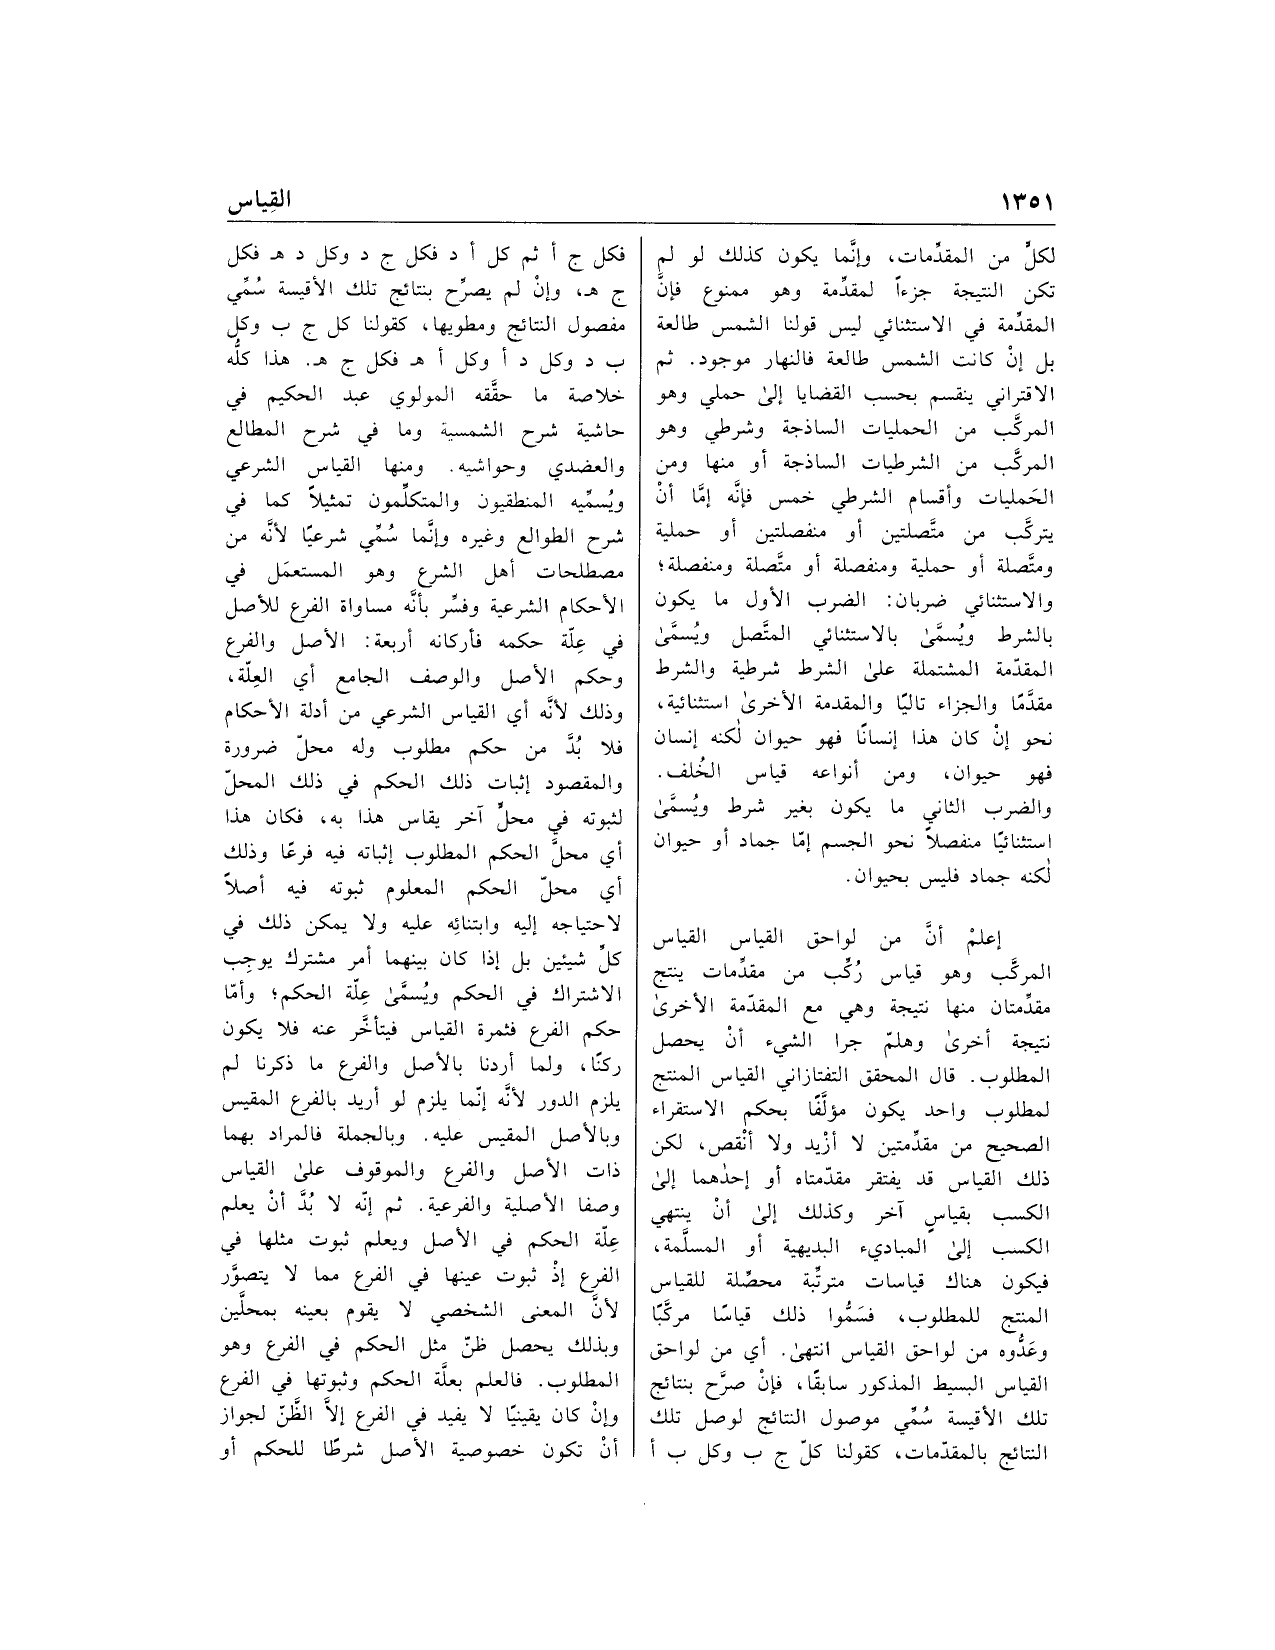 ١٣٥١
القِياس
لكلٍّ من المقدِّمات، وإنَّما يكون كذلك لو لم
تكن النتيجة جزءاً لمقدِّمة وهو ممنوع فإنَّ
المقدِّمة في الاستثنائي ليس قولنا الشمس طالعة
بل إنْ كانت الشمس طالعة فالنهار موجود. ثم
الاقتراني ينقسم بحسب القضايا إلىٰ حملي وهو
المركَّب من الحمليات الساذجة وشرطي وهو
المركَّب من الشرطيات الساذجة أو منها ومن
الحَمليات وأقسام الشرطي خمس فإنَّه إمَّا أنْ
يتركَّب من متَّصلتين أو منفصلتين أو حملية
ومتَّصلة أو حملية ومنفصلة أو متَّصلة ومنفصلة؛
والاستثنائي ضربان: الضرب الأول ما يكون
بالشرط ويُسمَّىٰ بالاستثنائي المتَّصل ويُسمَّىٰ
المقدّمة المشتملة علىٰ الشرط شرطية والشرط
مقدَّمًا والجزاء تاليًا والمقدمة الأخرىٰ استثنائية،
نحو إنْ كان هذا إنسانًا فهو حيوان لٰكنه إنسان
فهو حيوان، ومن أنواعه قياس الخُلف.
والضرب الثاني ما يكون بغير شرط ويُسمَّىٰ
استثنائيًا منفصلاً نحو الجسم إمّا جماد أو حيوان
لٰكنه جماد فليس بحيوان.
إعلمْ أنَّ من لواحق القياس القياس
المركَّب وهو قياس رُكِّب من مقدِّمات ينتج
مقدِّمتان منها نتيجة وهي مع المقدّمة الأخرىٰ
نتيجة أخرىٰ وهلمّ جرا الشيء أنْ يحصل
المطلوب. قال المحقق التفتازاني القياس المنتج
لمطلوب واحد يكون مؤلَّفًا بحكم الاستقراء
الصحيح من مقدِّمتين لا أزْيد ولا أنْقص، لكن
ذلك القياس قد يفتقر مقدّمتاه أو إحدٰهما إلىٰ
الكسب بقياسٍ آخر وكذلك إلىٰ أنْ ينتهي
الكسب إلىٰ المباديء البديهية أو المسلَّمة،
فيكون هناك قياسات مترتِّبة محصِّلة للقياس
المنتج للمطلوب، فسَمُّوا ذلك قياسًا مركَّبًا
وعَدُّوه من لواحق القياس انتهىٰ. أي من لواحق
القياس البسيط المذكور سابقًا، فإنْ صرَّح بنتائج
تلك الأقيسة سُمِّي موصول النتائج لوصل تلك
النتائج بالمقدّمات، كقولنا كلّ ج ب وكل ب أ
فكل ج أ ثم كل أ د فكل ج د وكل د هـ فكل
ج هـ، وإنْ لم يصرِّح بنتائج تلك الأقيسة سُمِّي
مفصول النتائج ومطويها، كقولنا كل ج ب وكل
ب د وكل د أ وكل أ هـ فكل ج هـ. هذا كلُّه
خلاصة ما حقَّقه المولوي عبد الحكيم في
حاشية شرح الشمسية وما في شرح المطالع
والعضدي وحواشيه. ومنها القياس الشرعي
ويُسمِّيه المنطقيون والمتكلِّمون تمثيلاً كما في
شرح الطوالع وغيره وإنَّما سُمِّي شرعيًا لأنَّه من
مصطلحات أهل الشرع وهو المستعمَل في
الأحكام الشرعية وفسِّر بأنَّه مساواة الفرع للأصل
في عِلّة حكمه فأركانه أربعة: الأصل والفرع
وحكم الأصل والوصف الجامع أي العِلّة،
وذلك لأنَّه أي القياس الشرعي من أدلة الأحكام
فلا بُدَّ من حكم مطلوب وله محلّ ضرورة
والمقصود إثبات ذلك الحكم في ذلك المحلّ
لثبوته في محلٍّ آخر يقاس هذا به، فكان هذا
أي محلَّ الحكم المطلوب إثباته فيه فرعًا وذلك
أي محلّ الحكم المعلوم ثبوته فيه أصلاً
لاحتياجه إليه وابتنائِه عليه ولا يمكن ذلك في
كلِّ شيئين بل إذا كان بينهما أمر مشترك يوجِب
الاشتراك في الحكم ويُسمَّىٰ عِلّة الحكم؛ وأمّا
حكم الفرع فثمرة القياس فيتأخَّر عنه فلا يكون
ركنًا، ولما أردنا بالأصل والفرع ما ذكرنا لم
يلزم الدور لأنَّه إنّما يلزم لو أريد بالفرع المقيس
وبالأصل المقيس عليه. وبالجملة فالمراد بهما
ذات الأصل والفرع والموقوف علىٰ القياس
وصفا الأصلية والفرعية. ثم إنّه لا بُدَّ أنْ يعلم
عِلّة الحكم في الأصل ويعلم ثبوت مثلها في
الفرع إذْ ثبوت عينها في الفرع مما لا يتصوَّر
لأنَّ المعنى الشخصي لا يقوم بعينه بمحلَّين
وبذلك يحصل ظنّ مثل الحكم في الفرع وهو
المطلوب. فالعلم بعلَّة الحكم وثبوتها في الفرع
وإنْ كان يقينيًا لا يفيد في الفرع إلاَّ الظَّنّ لجواز
أنْ تكون خصوصية الأصل شرطًا للحكم أو